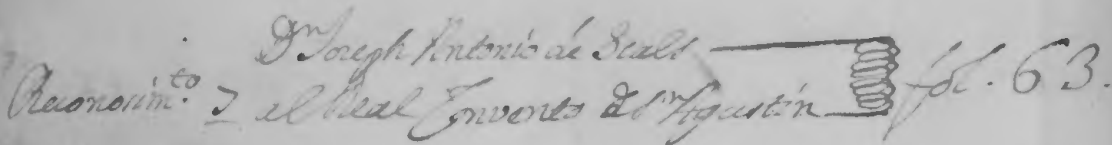 Dn Joseph Antonio de Scals
Reconosimto. a el Real Convento de Sn Agustin fol. 63.